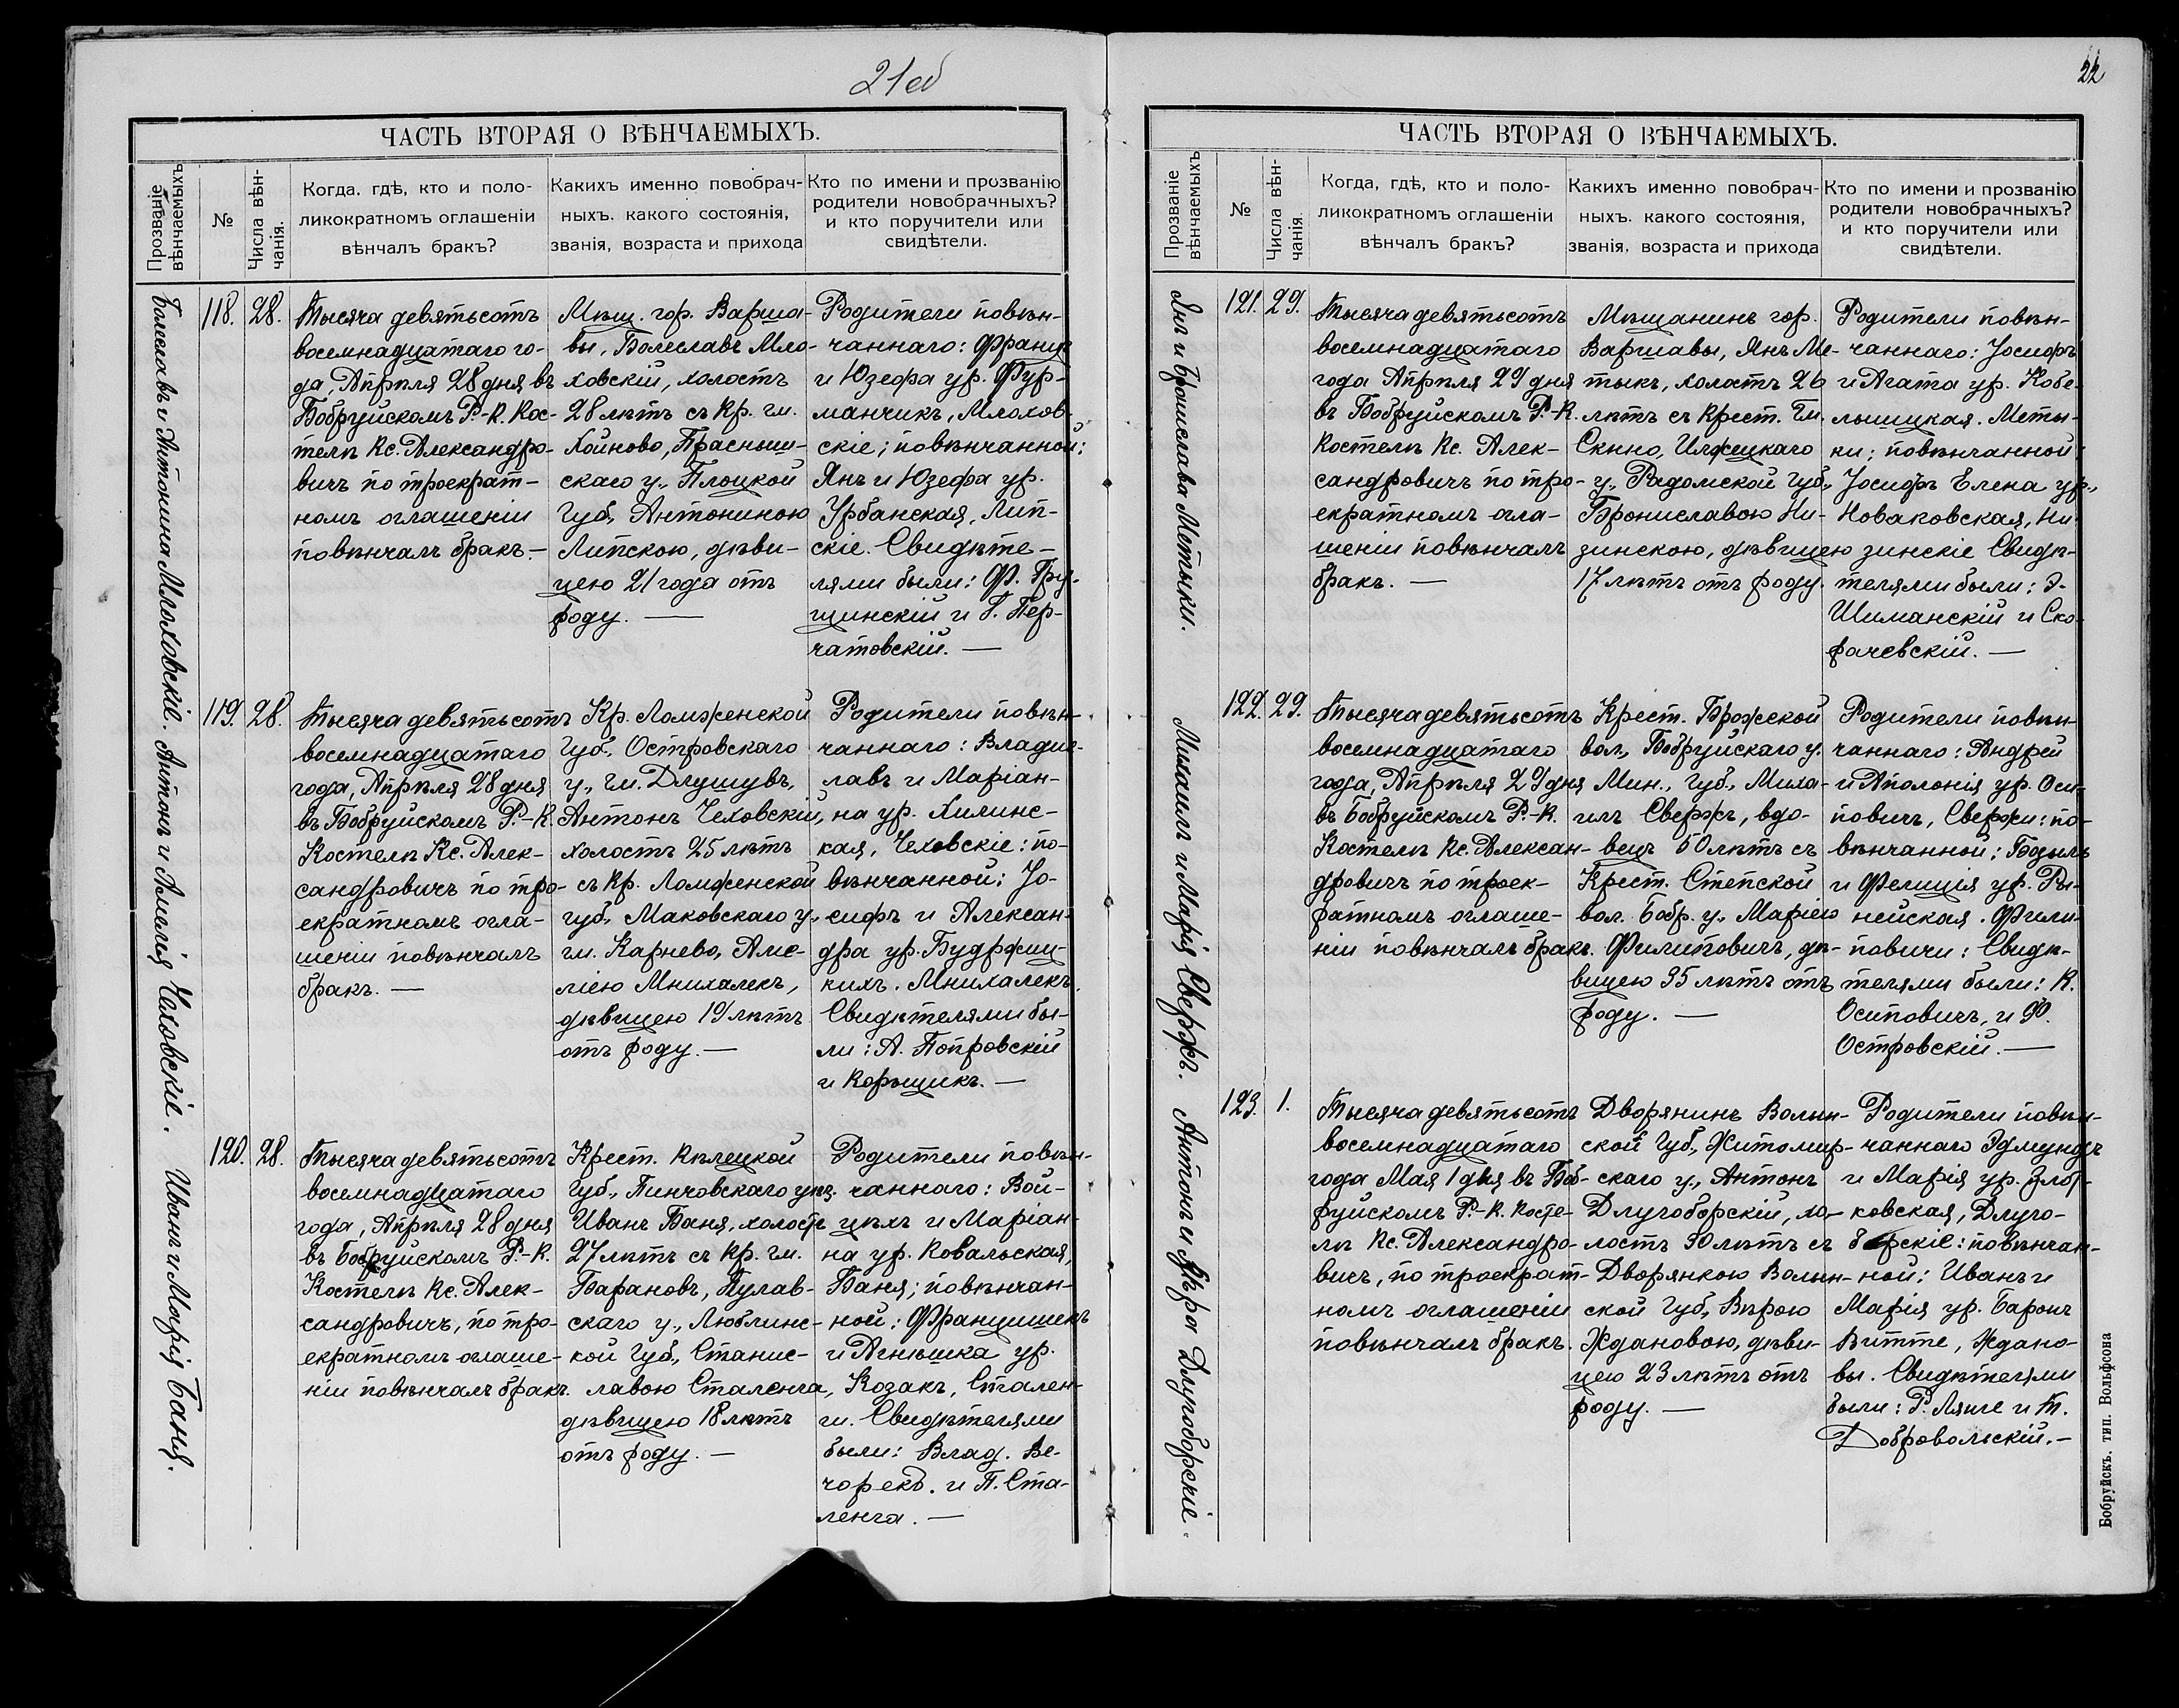 21об
ЧАСТЬ ВТОРАЯ О ВѢНЧАЕМЫХЪ.
Прозваніе вѣнчаемыхъ
№
Числа вѣнчанія.
Когда, гдѣ, кто и поло-
ликократномъ оглашеніи
вѣнчалъ бракъ?
Какихъ именно повобрач-
ныхъ. какого состоянія,
званія, возраста и прихода
Кто по имени и прозванію
родители новобрачныхъ?
и кто поручители или
свидѣтели.
Болеславъ и Антонина Млоховскіе.
118.
28.
Тысяча девятьсотъ
восемнадцатаго го-
да, Апрѣля 28 дня въ
Бобруйскомъ Р.-К. Кос-
телѣ Кс. Александро-
вичъ по троекрат-
номъ оглашеніи
повѣнчалъ бракъ.—
Мѣщ. гор. Варша-
вы, Болеславъ Мло-
ховскій, холостъ
28 лѣтъ съ Кр. гм.
Хойново, Прасныш-
скаго у., Плоцкой
Губ., Антониною
Липскою, дѣви-
цею 21 года отъ
роду. —
Родители повѣн-
чаннаго: Франц
и Юзефа ур. Фур-
манчикъ, Млохов-
скіе; повѣнчанной:
Янъ и Юзефа ур.
Урбанская, Лип-
скіе. Свидѣте-
лями были: Ф. Гру-
щинскій и Г. Пер-
чатовскій. —
Антонъ и Амелія Чеховскіе.
119.
28.
Тысяча девятьсотъ
восемнадцатаго
года, Апрѣля 28 дня
въ Бобруйскомъ Р.-К.
Костелѣ Кс. Алек-
сандровичъ по тро-
екратномъ огла-
шеніи повѣнчалъ
бракъ. —
Кр. Ломженской
Губ., Островскаго
у., гм. Длушувъ,
Антонъ Чеховскій,
холостъ 25 лѣтъ
съ Кр. Ломженской
губ., Маковскаго у.,
гм. Карнево, Аме-
ліею Мнихалекъ,
дѣвицею 19 лѣтъ
отъ роду. —
Родители повѣн-
чаннаго: Владис-
лавъ и Маріан-
на ур. Хилинс-
кая, Чеховскіе: по-
вѣнчанной: Іо-
сифъ и Алексан-
дра ур. Будржиц-
кихъ. Мнихалекъ.
Свидѣтелями бы-
ли: А. Попровскій
и Корыщикъ. —
Иванъ и Марія Баня.
120.
28.
Тысяча девятьсотъ
восемнадцатаго
года, Апрѣля 28 дня
въ Бобруйскомъ Р.-К.
Костелѣ Кс. Алек-
сандровичъ, по тро-
екратномъ оглаше-
ніи повѣнчалъ бракъ.
Крест. Кѣлецкой
Губ., Пинчовскаго уѣз.
Иванъ Баня, холостъ
27 лѣтъ съ Кр. гм.
Барановъ, Пулав-
скаго у., Люблинс-
кой Губ., Станис-
лавою Сталенга,
дѣвицею 18 лѣтъ
отъ роду. —
Родители повѣн-
чаннаго: Вой-
цѣхъ и Маріан-
на ур. Ковальская,
Баня; повѣнчан-
ной: Францишекъ
и Агнѣшка ур.
Козакъ, Стален-
ги. Свидѣтелями
были: Влад. Ве-
чорекъ. и П. Ста-
ленга. —
22
ЧАСТЬ ВТОРАЯ О ВѢНЧАЕМЫХЪ.
Прозваніе вѣнчаемыхъ
№
Числа вѣнчанія.
Когда, гдѣ, кто и поло-
ликократномъ оглашеніи
вѣнчалъ бракъ?
Какихъ именно повобрач-
ныхъ. какого состоянія,
званія, возраста и прихода
Кто по имени и прозванію
родители новобрачныхъ?
и кто поручители или
свидѣтели.
Янъ и Брониславa Метыки.
121.
29.
Тысяча девятьсотъ
восемнадцатаго
года Апрѣля 29 дня
въ Бобруйскомъ Р.-К.
Костелѣ Кс. Алек-
сандровичъ по тро-
екратномъ огла-
шеніи повѣнчалъ
бракъ. —
Мѣщанинъ гор.
Варшавы, Янъ Ме-
тыкъ, холостъ 26
лѣтъ съ Крест. Гм.
Скино, Илжецкаго
у., Радомской Губ.,
Брониславою Ни-
зинскою, дѣвицею
17 лѣтъ отъ роду.
Родители повѣн-
чаннаго: Іосифъ
и Агата ур. Кобе-
лышцкая. Меты-
ки; повѣнчанной
Іосифъ Елена ур.,
Новаковская, Ни-
зинскіе Свидѣ-
телями были: Э.
Шиманскій и Ско-
рачевскій. —
Михаилъ и Марія Свержъ.
122.
29.
Тысяча девятьсотъ
восемнадцатаго
года, Апрѣля 29 дня
въ Бобруйскомъ Р.-К.
Костелѣ Кс. Алексан-
дровичъ по троек-
ратномъ оглаше-
ніи повѣнчалъ бракъ.
Крест. Брожской
вол., Бобруйскаго у.
Мин., Губ., Миха-
илъ Свержъ, вдо-
вецъ 50 лѣтъ съ
Крест. Степской
вол. Бобр. у., Маріею
Филиповичъ, дѣ-
вицею 35 лѣтъ отъ
роду. —
Родители повѣн-
чаннаго: Андрей
и Аполонія ур. Оси-
повичъ, Свержи: по-
вѣнчанной: Базыль
и Фелиція ур. Ры-
нейская. Фили-
повичи: Свидѣ-
телями были: К.
Осиповичъ, и Ф.
Островскій. —
Антонъ и Вѣра Длугоборскіе.
123.
1.
Тысяча девятьсотъ
восемнадцатаго
года Мая 1 дня въ Боб-
руйскомъ Р.-К. Косте-
лѣ Кс. Александро-
вичъ, по троекрат-
номъ оглашеніи
повѣнчалъ бракъ.
Дворянинъ Волын-
ской Губ., Житомир-
скаго у., Антонъ
Длугоборскій, хо-
лостъ 30 лѣтъ съ
Дворянкою Волын-
ской Губ., Вѣрою
Ждановою, дѣви-
цею 23 лѣтъ отъ
роду. —
Родители повѣн-
чаннаго Эдмундъ
и Марія ур.
ковская, Длуго-
борскіе: повѣнчан-
ной: Иванъ и
Марія ур. Баронъ
Витте, Ждано-
вы. Свидѣтелями
были: Р. Лянге и Т.
Добровольскій. —
Бобруйскъ. тип. Вольфсона